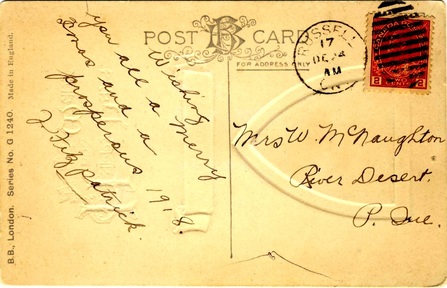 B.B., London. Series No. G 1240. Made in England.
POST B CARD
FOR ADDRESS ONLY
Wishing
you all a Merry
Xmas and a
prosperous 1918.
J. Fitzpatrick.
RUSSELL
17
DE 24
AM
2 CENTS 2
Mrs W. McNaughton
River Desert.
P. Que.